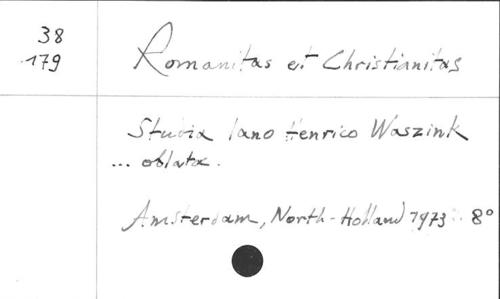 38
179
Romanitas et Christianitas
Studia Iano Henrico Waszink
... oblata.
Amsterdam, North-Holland 1973. 8°